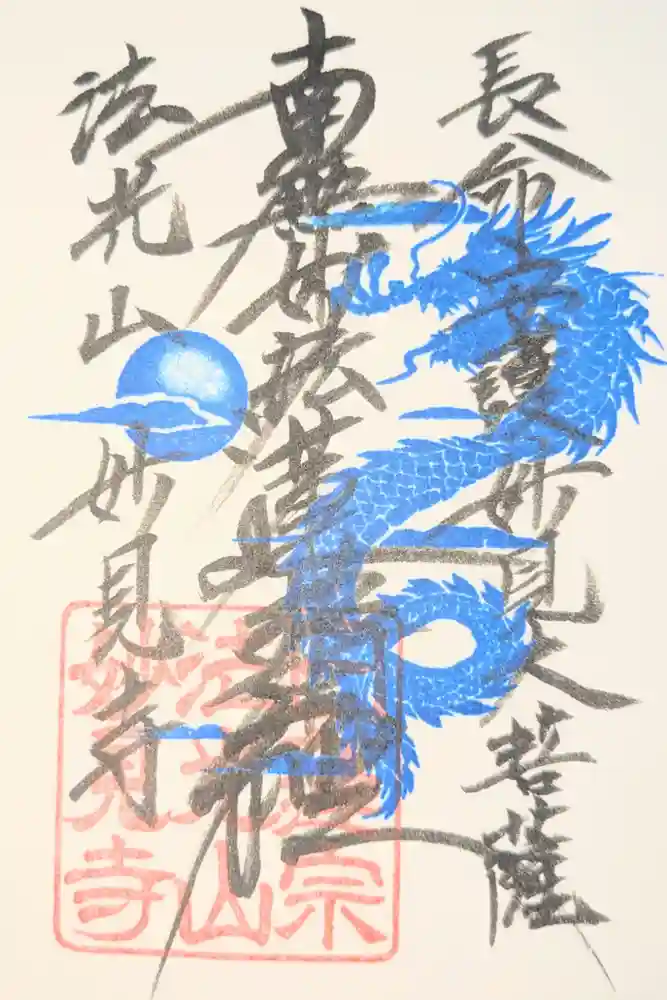 長命守護妙見大菩薩
南無妙法蓮華経
法光山 妙見寺
日蓮宗
法光山
妙見寺